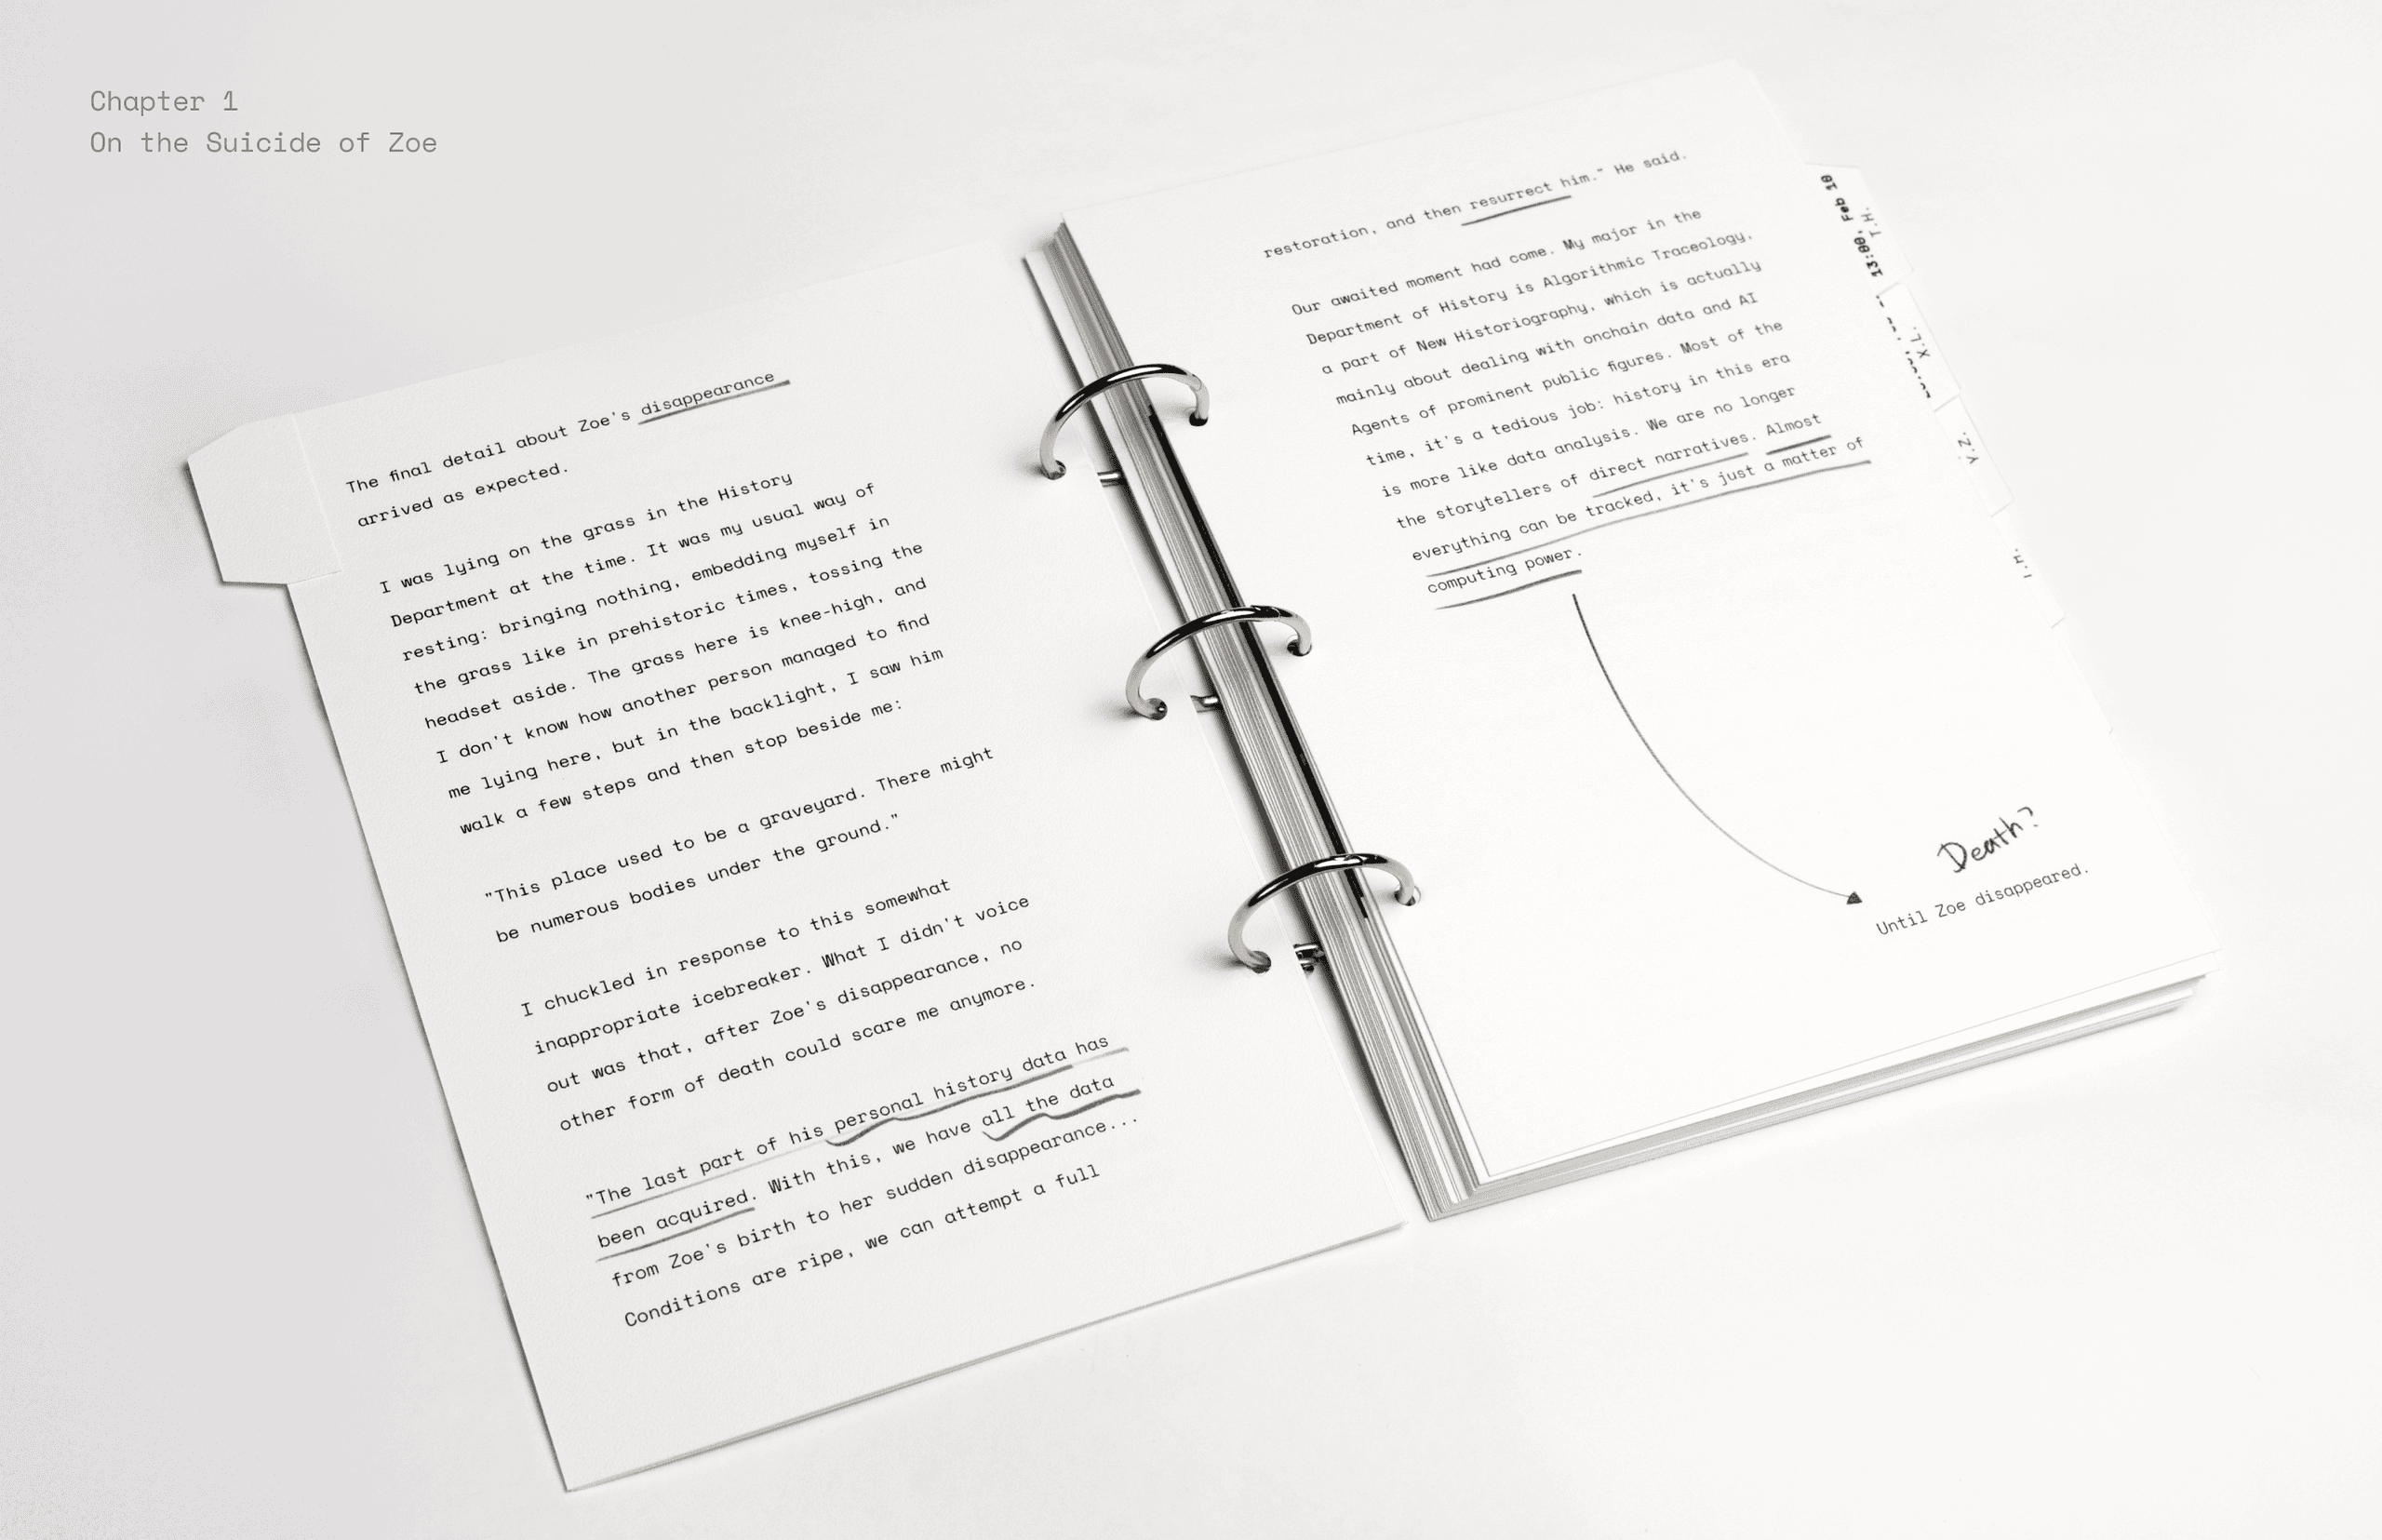 Chapter 1
On the Suicide of Zoe
The final detail about Zoe's disappearance
arrived as expected.
I was lying on the grass in the History
Department at the time. It was my usual way of
resting: bringing nothing, embedding myself in
the grass like in prehistoric times, tossing the
headset aside. The grass here is knee-high, and
I don't know how another person managed to find
me lying here, but in the backlight, I saw him
walk a few steps and then stop beside me:
"This place used to be a graveyard. There might
be numerous bodies under the ground."
I chuckled in response to this somewhat
inappropriate icebreaker. What I didn't voice
out was that, after Zoe's disappearance, no
other form of death could scare me anymore.
"The last part of his personal history data has
been acquired. With this, we have all the data
from Zoe's birth to her sudden disappearance...
Conditions are ripe, we can attempt a full
restoration, and then resurrect him." He said.
Our awaited moment had come. My major in the
Department of History is Algorithmic Traceology,
a part of New Historiography, which is actually
mainly about dealing with onchain data and AI
Agents of prominent public figures. Most of the
time, it's a tedious job: history in this era
is more like data analysis. We are no longer
the storytellers of direct narratives. Almost
everything can be tracked, it's just a matter of
computing power.
Death?
Until Zoe disappeared.
13:00, Feb 10
T.H.
X.L.
Y.Z.